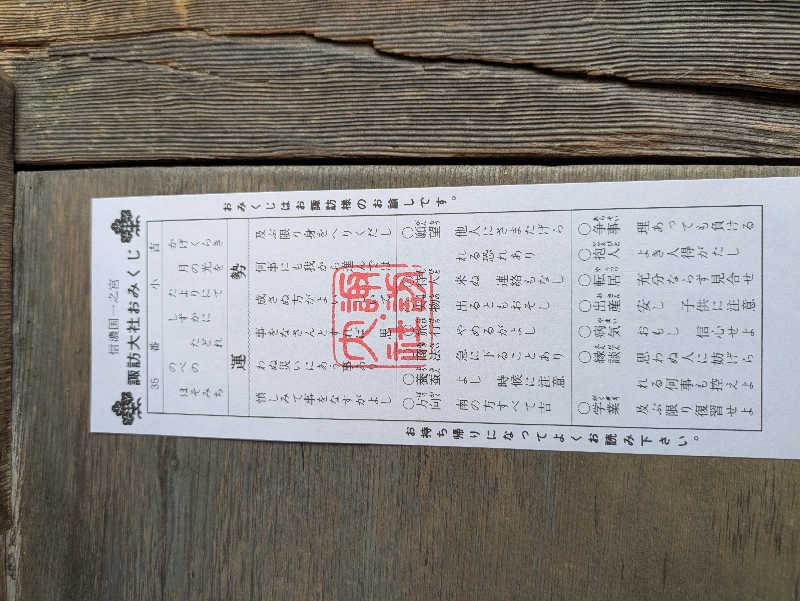 信濃国一之宮
諏訪大社おみくじ
35 番 小 吉
かげくらき
月の光を
たよりにて
しずかに
たどれ
のべの
ほそみち
運 勢
及ぶ限り身をへりくだし
何事にも我から進んでは
成さぬ方がよい
事をなさんとすれば 思
わぬ災いにあう事あり
慎しみて事をなすがよし
○願望 他人にさまたげら
れる恐れあり
○待人 来ぬ 連絡もなし
○失物 出るともおそし
○旅行 やめるがよし
○商法 急に下ることあり
○養蚕 よし 時候に注意
○方向 南の方すべて吉
○争事 理あっても負ける
○抱人 よき人得がたし
○転居 充分ならず見合せ
○出産 安し 子供に注意
○病気 おもし 信心せよ
○縁談 思わぬ人に妨げら
れる何事も控えよ
○学業 及ぶ限り復習せよ
おみくじはお諏訪様のお諭しです。
お持ち帰りになってよくお読み下さい。
諏訪大社